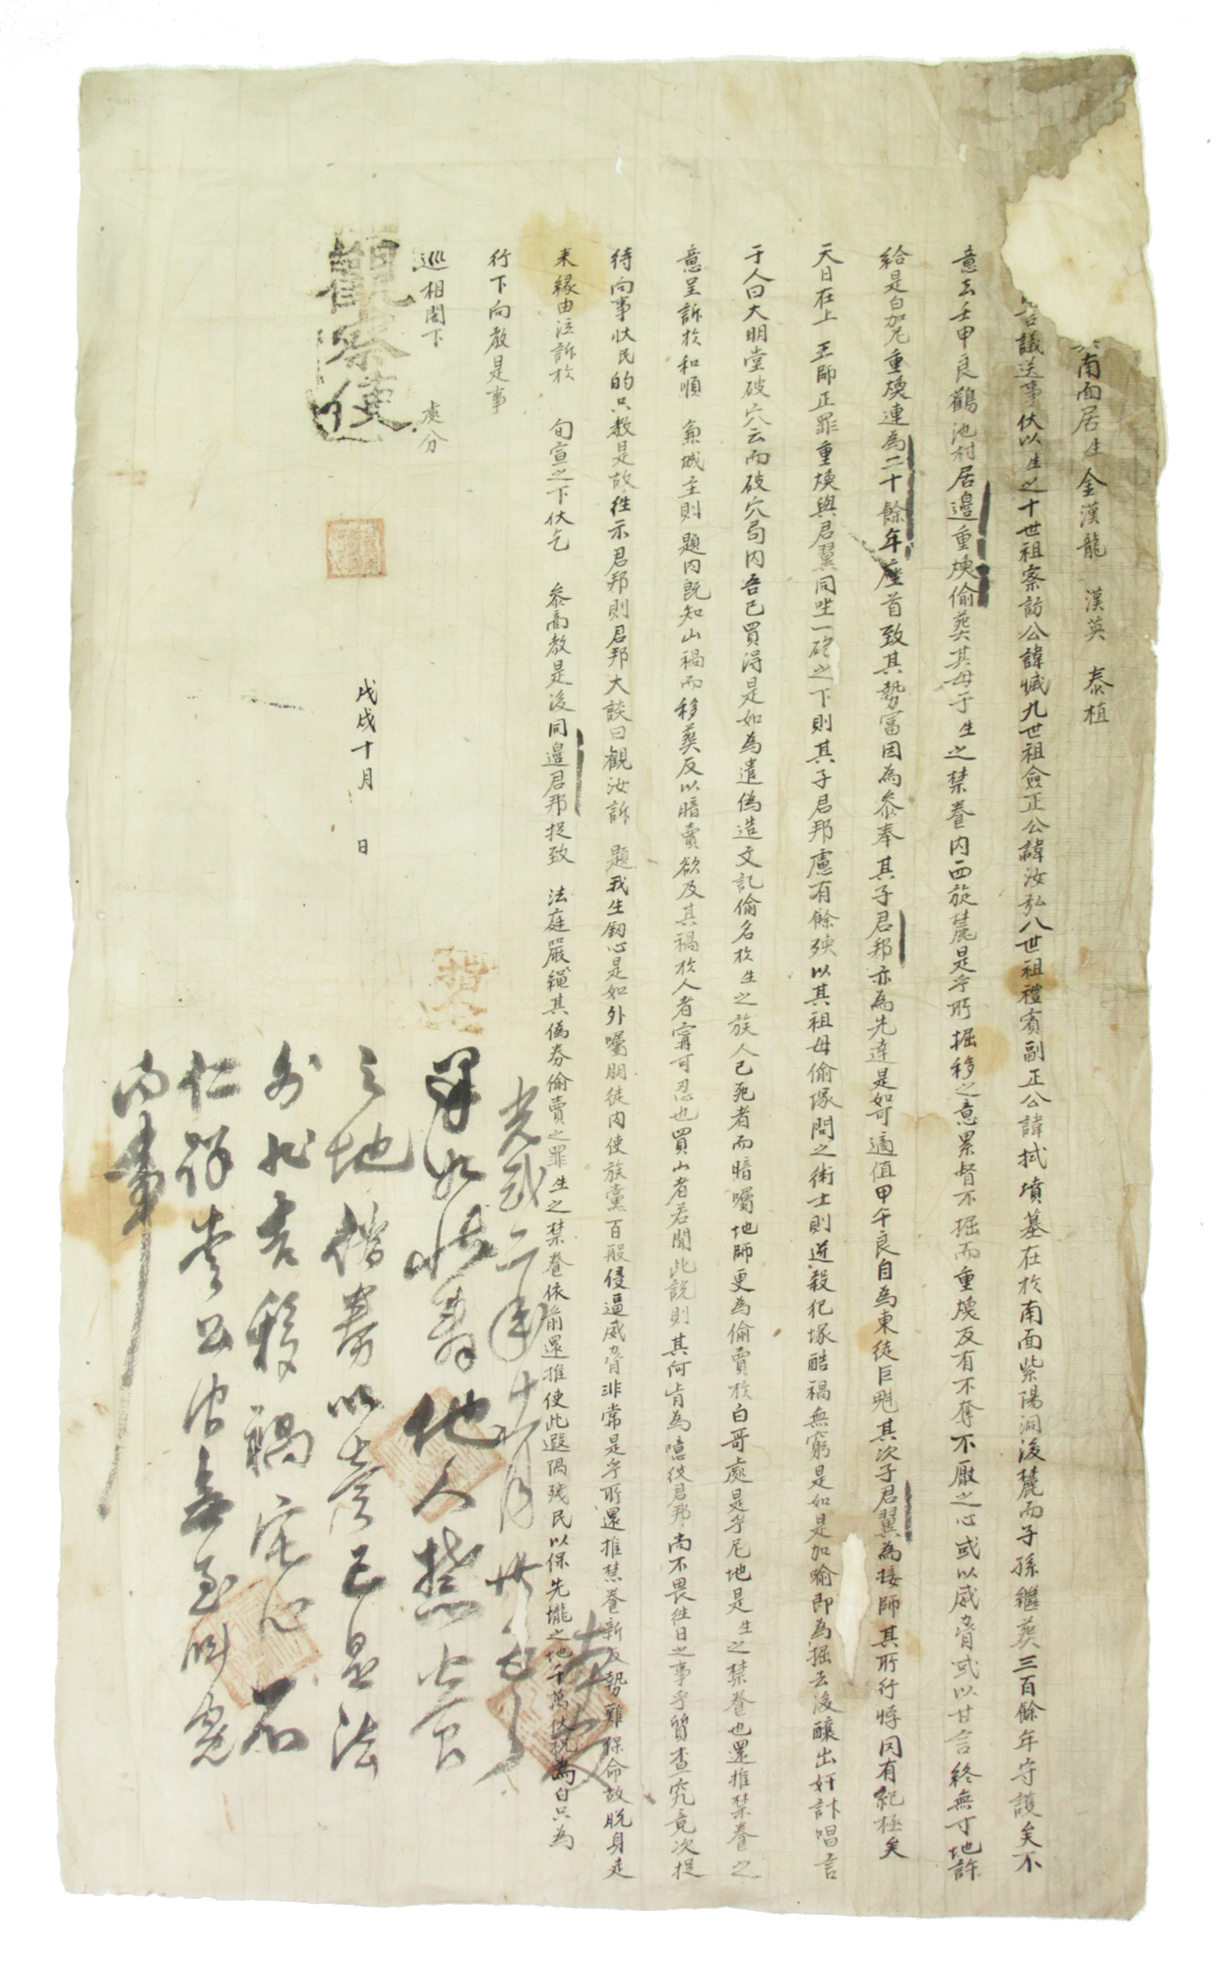 南面居生 金漢龍 漢英 泰植
議送事伏以生之十世祖察訪公諱 九世祖僉正公諱汝弘八世祖禮賓副正公諱拭墳墓在於南面紫陽洞後麓而子孫繼葬三百餘年守護矣不
意去壬申良鶴池村居邊重煥偷葬其母于生之禁養內西旋麓是乎所掘移之意累督不掘而重煥反有不奪不厭之心或以威脅或以甘言終無寸地許
給是白加尼重煥連為二十餘年座首致其勢富因為參奉其子君邦亦為先達是如可適值甲午良自為東徒巨魁其次子君翼為接師其所行悖罔有紀極矣
天日在上 王師正罪重煥與君翼同 一砲之下則其子君邦慮有餘殃以其祖母偷塚問之術士則逆殺犯塚酷禍無窮是如是加喻即為掘去後釀出奸計唱言
于人曰大明堂破穴云而破穴局內吾已買得是如為遣偽造文記偷名於生之族人已死者而暗囑地師更為偷賣於白哥處是乎尼地是生之禁養也還推禁養之
意呈訴於和順 兼城主則 題內既知山禍而移葬反以暗賣欲及其禍於人者寧可忍也買山者若聞此說則其何肯為噫彼君邦尚不畏往日之事乎質查究竟次捉
待向事伏民的只教是故往示君邦則君邦大談曰觀汝訴 題我生 心是如外囑朋徒內使族黨百般侵逼威脅非常是乎所還推禁養新反勢難保命故脫身走
來緣由泣訴於 旬宣之下伏乞 參商教是後同邊君邦捉致 法庭嚴繩其偽券偷賣之罪生之禁養依前還推使此遐隅殘民以保先壠之地千萬伏祝為白只為
行下向教是事
巡相閤下 處分
戊戌十月 日
觀察使
光武二年十一月廿
果如此 他人禁養
之地 以賣已是法
外 吉移禍 心
仁 至 冤
向事